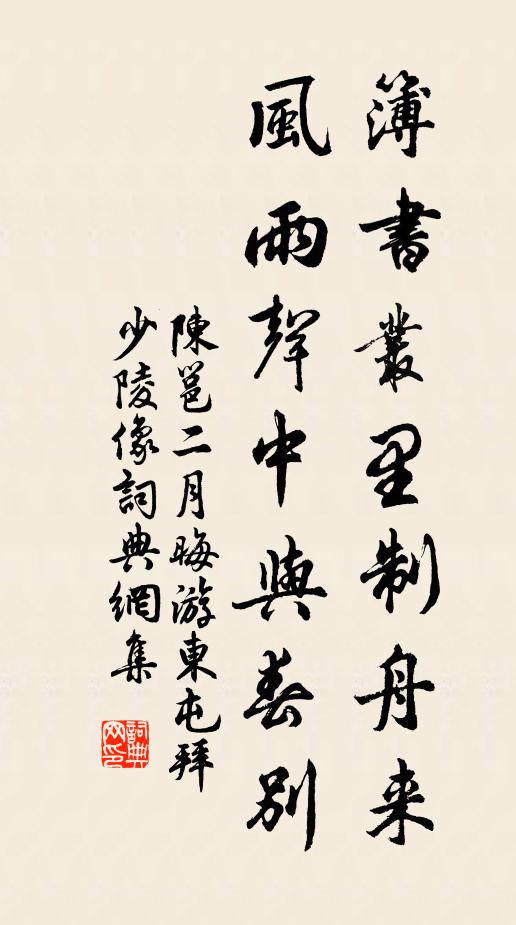 簿書叢里制舟来
風雨聲中與春別
陳邕二月晦游東屯拜
少陵像詞典網集
詞典
网印